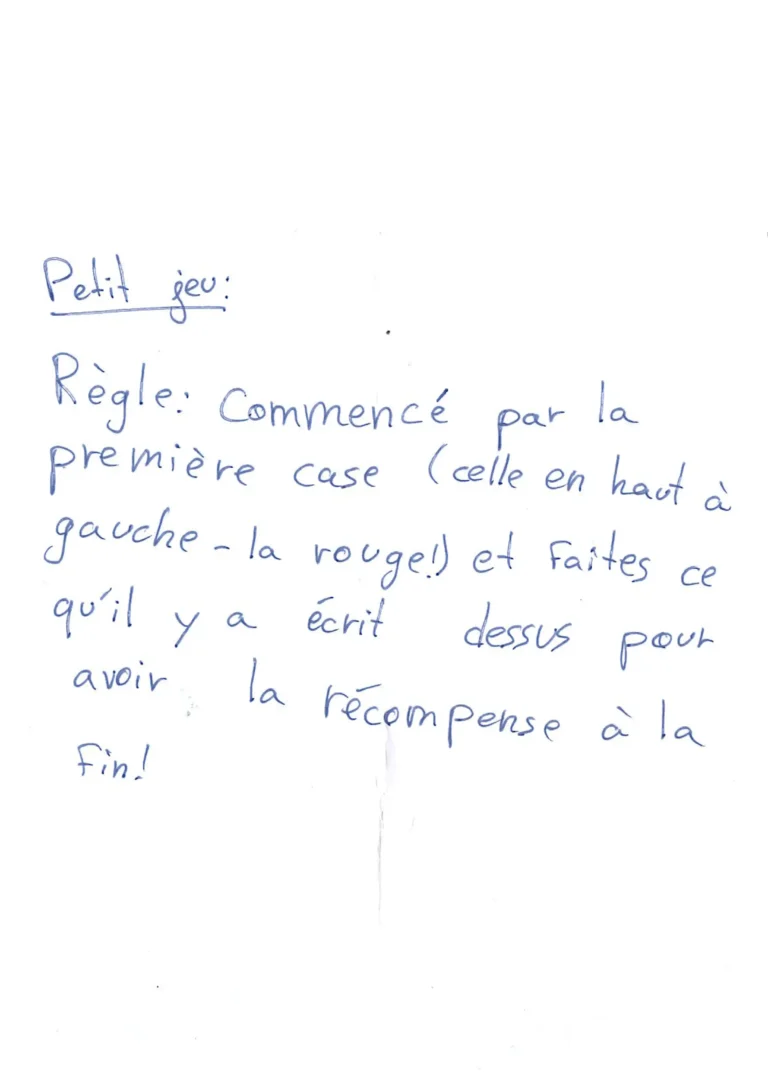 Petit jeu:
Règle: Commencé par la
première case (celle en haut à
gauche - la rouge!) et faites ce
qu'il y a écrit dessus pour
avoir la récompense à la
fin!